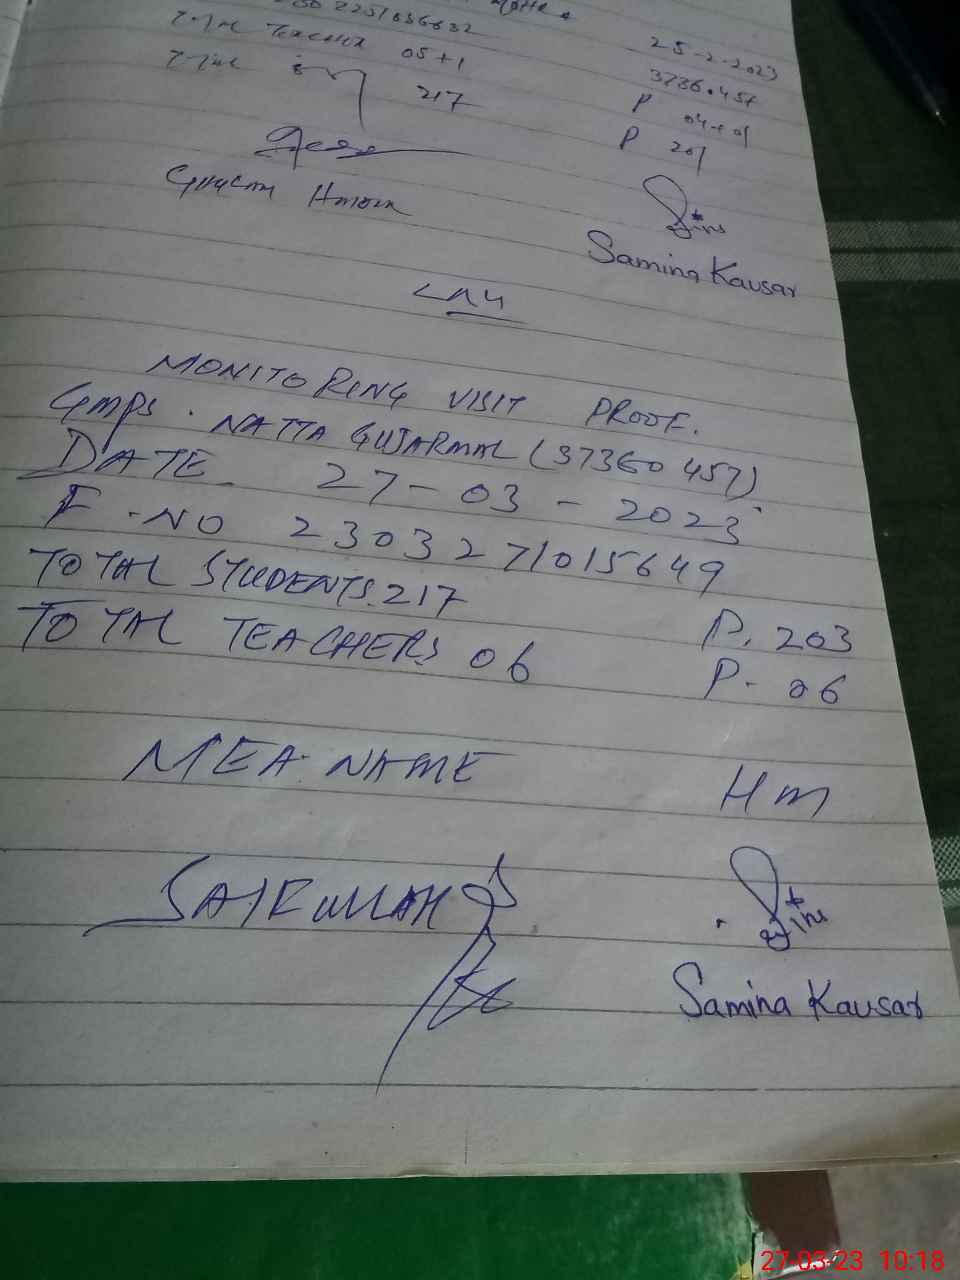 25-2-2023
Total Teacher 05+1
37360457
Total 217
P 04+01
P 201
Samina Kausar
MONITORING VISIT PROOF.
GMPS. NATTA GUJARMAL (37360457)
DATE- 27-03-2023
F.NO 2303271015649
TOTAL STUDENTS.217 P. 203
TOTAL TEACHERS 06 P- 06
MEA NAME Hm
SAIFULLAH
Samina Kausar
27-03-23 10:18